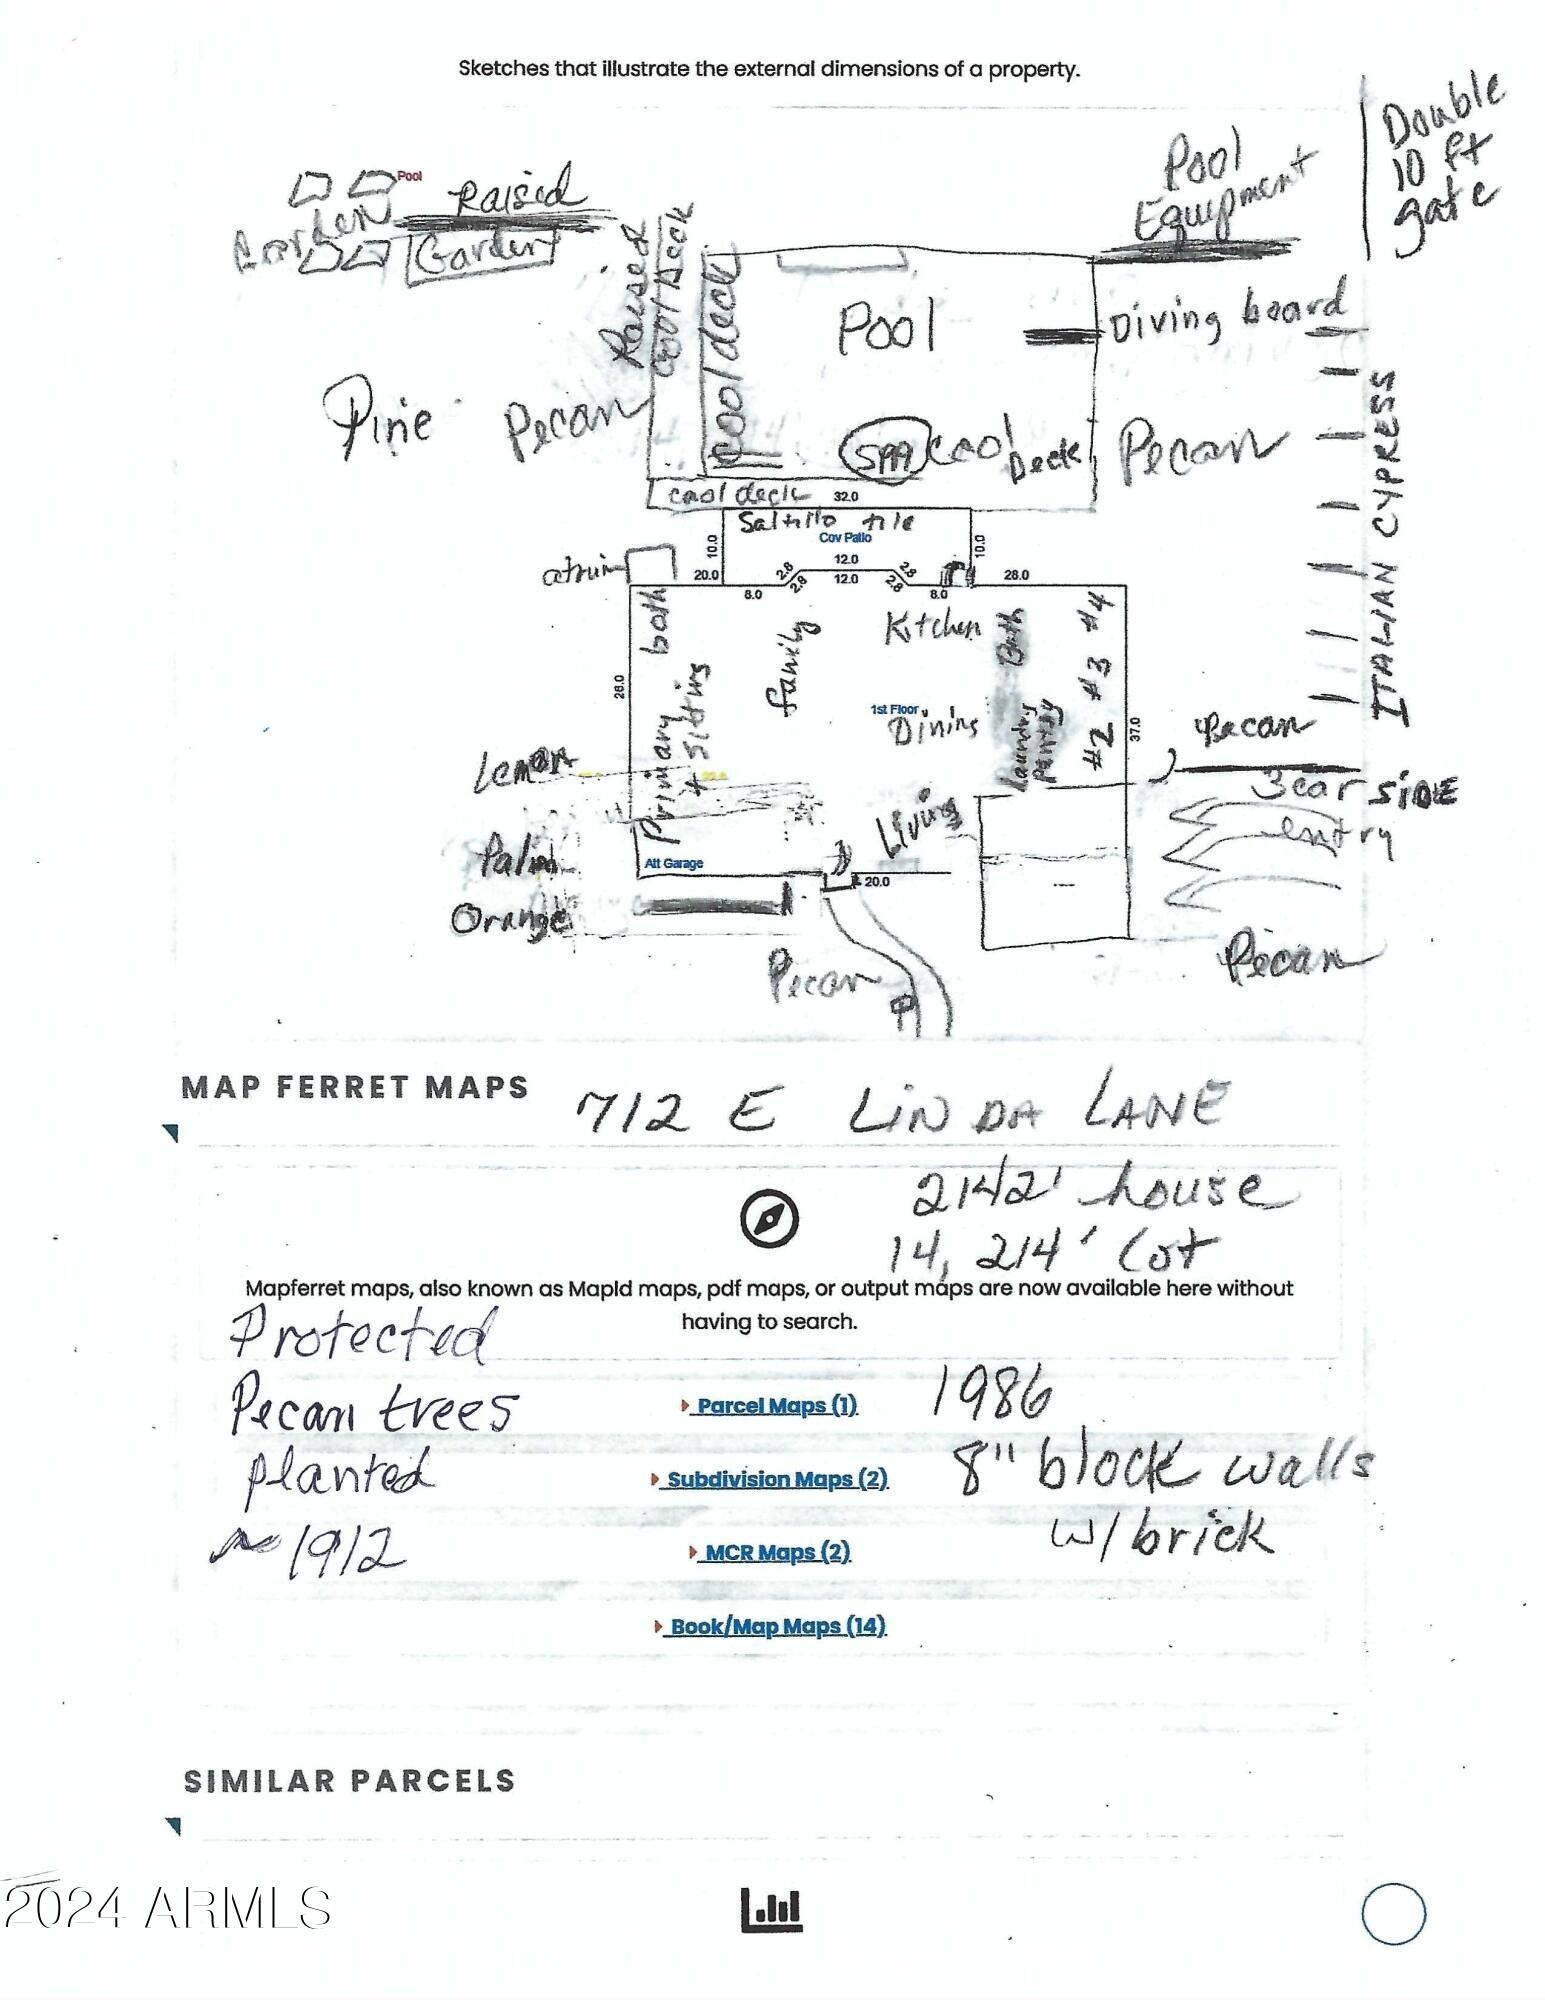 Sketches that illustrate the external dimensions of a property.
Double
10 ft
gate
Pool
Equipment
Pool
Raised
Garden
Garden
Raised
Cool Deck
cool deck
Pool
Diving board
Pine
Pecan
Spa
Cool
Deck
Pecan
ITALIAN CYPRESS
cool deck
32.0
Saltillo tile
Cov Patio
10.0
10.0
atrium
20.0
2.8
12.0
2.8
28.0
8.0
2.8
12.0
2.8
8.0
bath
family
Kitchen
Bath
#4
#3
#2
26.0
Primary
+ Sitting
1st Floor
Dining
Laundry
Pantry
37.0
Pecan
Lemon
3 car SIDE
entry
Living
Palm
Att Garage
20.0
Orange
Pecan
Pecan
MAP FERRET MAPS
712 E LINDA LANE
2142' house
14,214' Lot
Mapferret maps, also known as MapId maps, pdf maps, or output maps are now available here without
having to search.
Protected
Pecan trees
planted
~1912
Parcel Maps (1)
1986
Subdivision Maps (2)
8" block walls
w/ brick
MCR Maps (2)
Book/Map Maps (14)
SIMILAR PARCELS
2024 ARMLS